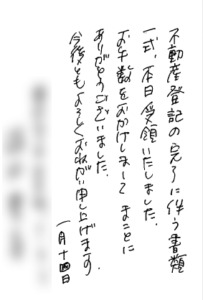 不動産登記の完了に伴う書類
一式、本日受領いたしました。
お手数をおかけしまして まことに
ありがとうございました。
今後ともよろしくおねがい申し上げます。
一月十四日